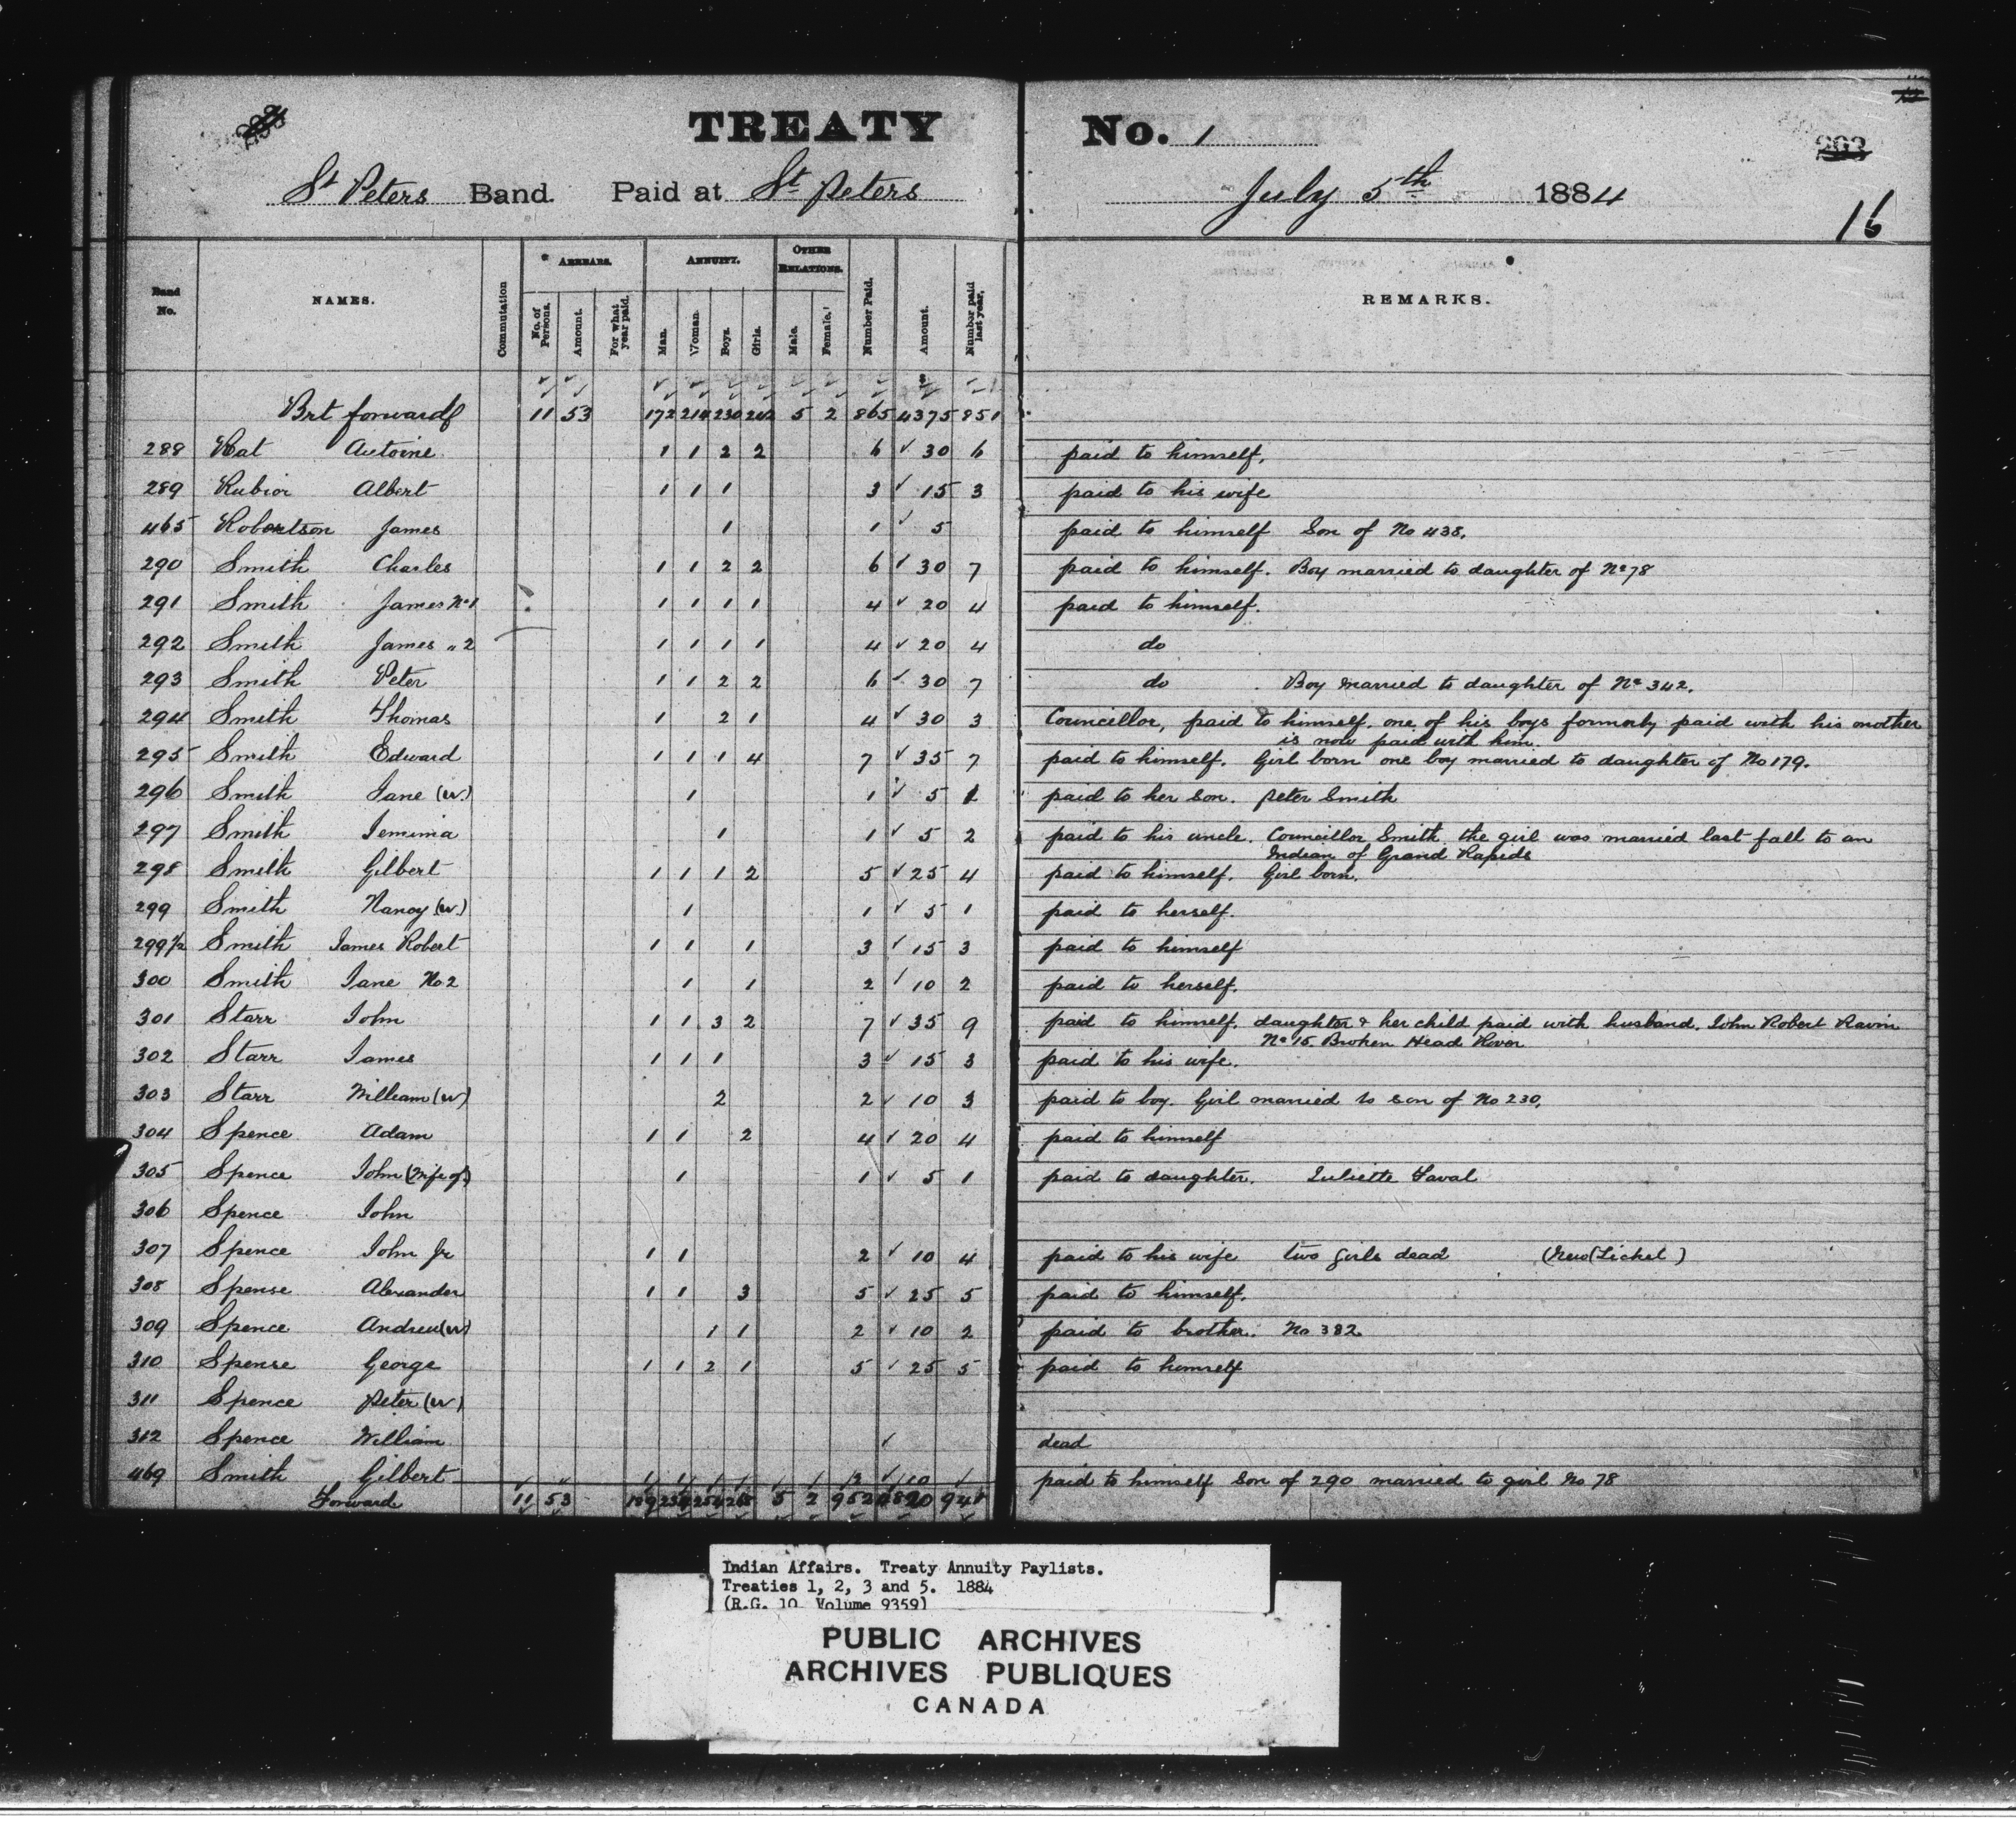 TREATY No. 1
293
St Peters Band. Paid at St peters July 5th 1884
16
Band No. NAMES. Commutation ARREARS. No. of Persons. Amount. For what year paid. ANNUITY. Man. Woman. Boys. Girls. OTHER RELATIONS. Male. Female. Number Paid. Amount. Number paid last year. REMARKS.
Brt forward 11 53 172 214 230 242 5 2 865 4375 851
288 Rat Antoine 1 1 2 2 6 ✓ 30 6 paid to himself,
289 Rubior Albert 1 1 1 3 ✓ 15 3 paid to his wife
465 Robertson James 1 1 ✓ 5 paid to himself Son of No 438.
290 Smith Charles 1 1 2 2 6 ✓ 30 7 paid to himself. Boy married to daughter of No 78
291 Smith James No 1 1 1 1 1 4 ✓ 20 4 paid to himself.
292 Smith James " 2 1 1 1 1 4 ✓ 20 4 do
293 Smith Peter 1 1 2 2 6 ✓ 30 7 do Boy married to daughter of No 342.
294 Smith Thomas 1 2 1 4 ✓ 30 3 Councillor, paid to himself, one of his boys formerly paid with his mother
is now paid with him.
295 Smith Edward 1 1 1 4 7 ✓ 35 7 paid to himself. Girl born one boy married to daughter of No 179.
296 Smith Jane (w.) 1 1 ✓ 5 1 paid to her son. peter Smith
297 Smith Jemima 1 1 ✓ 5 2 paid to his uncle. Councillor Smith the girl was married last fall to an
Indian of Grand Rapids
298 Smith Gilbert 1 1 1 2 5 ✓ 25 4 paid to himself. Girl born.
299 Smith Nancy (w.) 1 1 ✓ 5 1 paid to herself.
299 1/2 Smith James Robert 1 1 1 3 ✓ 15 3 paid to himself
300 Smith Jane No 2 1 1 2 ✓ 10 2 paid to herself.
301 Starr John 1 1 3 2 7 ✓ 35 9 paid to himself. daughter & her child paid with husband. John Robert Ravin
No 15. Broken Head River
302 Starr James 1 1 1 3 ✓ 15 3 paid to his wife.
303 Starr William (w) 2 2 ✓ 10 3 paid to boy. Girl married to son of No 230.
304 Spence Adam 1 1 2 4 ✓ 20 4 paid to himself
305 Spence John (Wife of) 1 1 ✓ 5 1 paid to daughter. Juliette Laval
306 Spence John
307 Spence John Jr 1 1 2 ✓ 10 4 paid to his wife two girls dead (New Ticket)
308 Spense Alexander 1 1 3 5 ✓ 25 5 paid to himself.
309 Spence Andrew (w) 1 1 2 ✓ 10 2 paid to brother. No 382.
310 Spense George 1 1 2 1 5 ✓ 25 5 paid to himself
311 Spence peter (w)
312 Spence William ✓ dead
469 Smith Gilbert 1 1 2 ✓ 10 paid to himself Son of 290 married to girl No 78
Forward 11 53 5 2 952 941
Indian Affairs. Treaty Annuity Paylists.
Treaties 1, 2, 3 and 5. 1884
(R.G. 10 Volume 9359)
PUBLIC ARCHIVES
ARCHIVES PUBLIQUES
CANADA